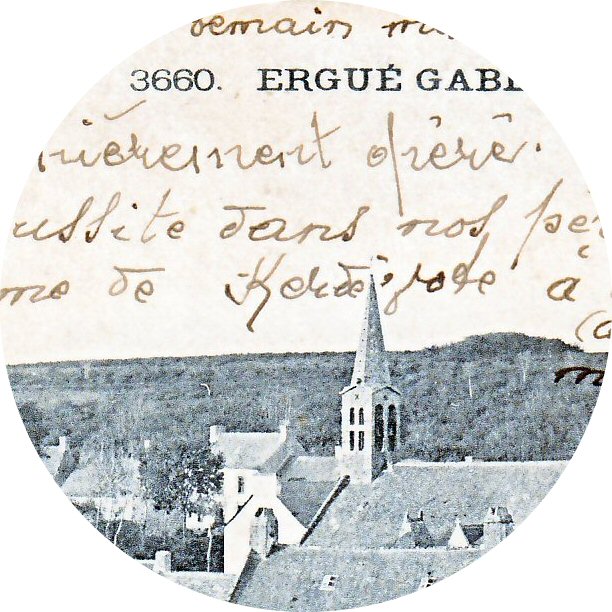 demain
3660. ERGUÉ GAB
nièrement opéré.
ussite dans nos
me de Kerdé à